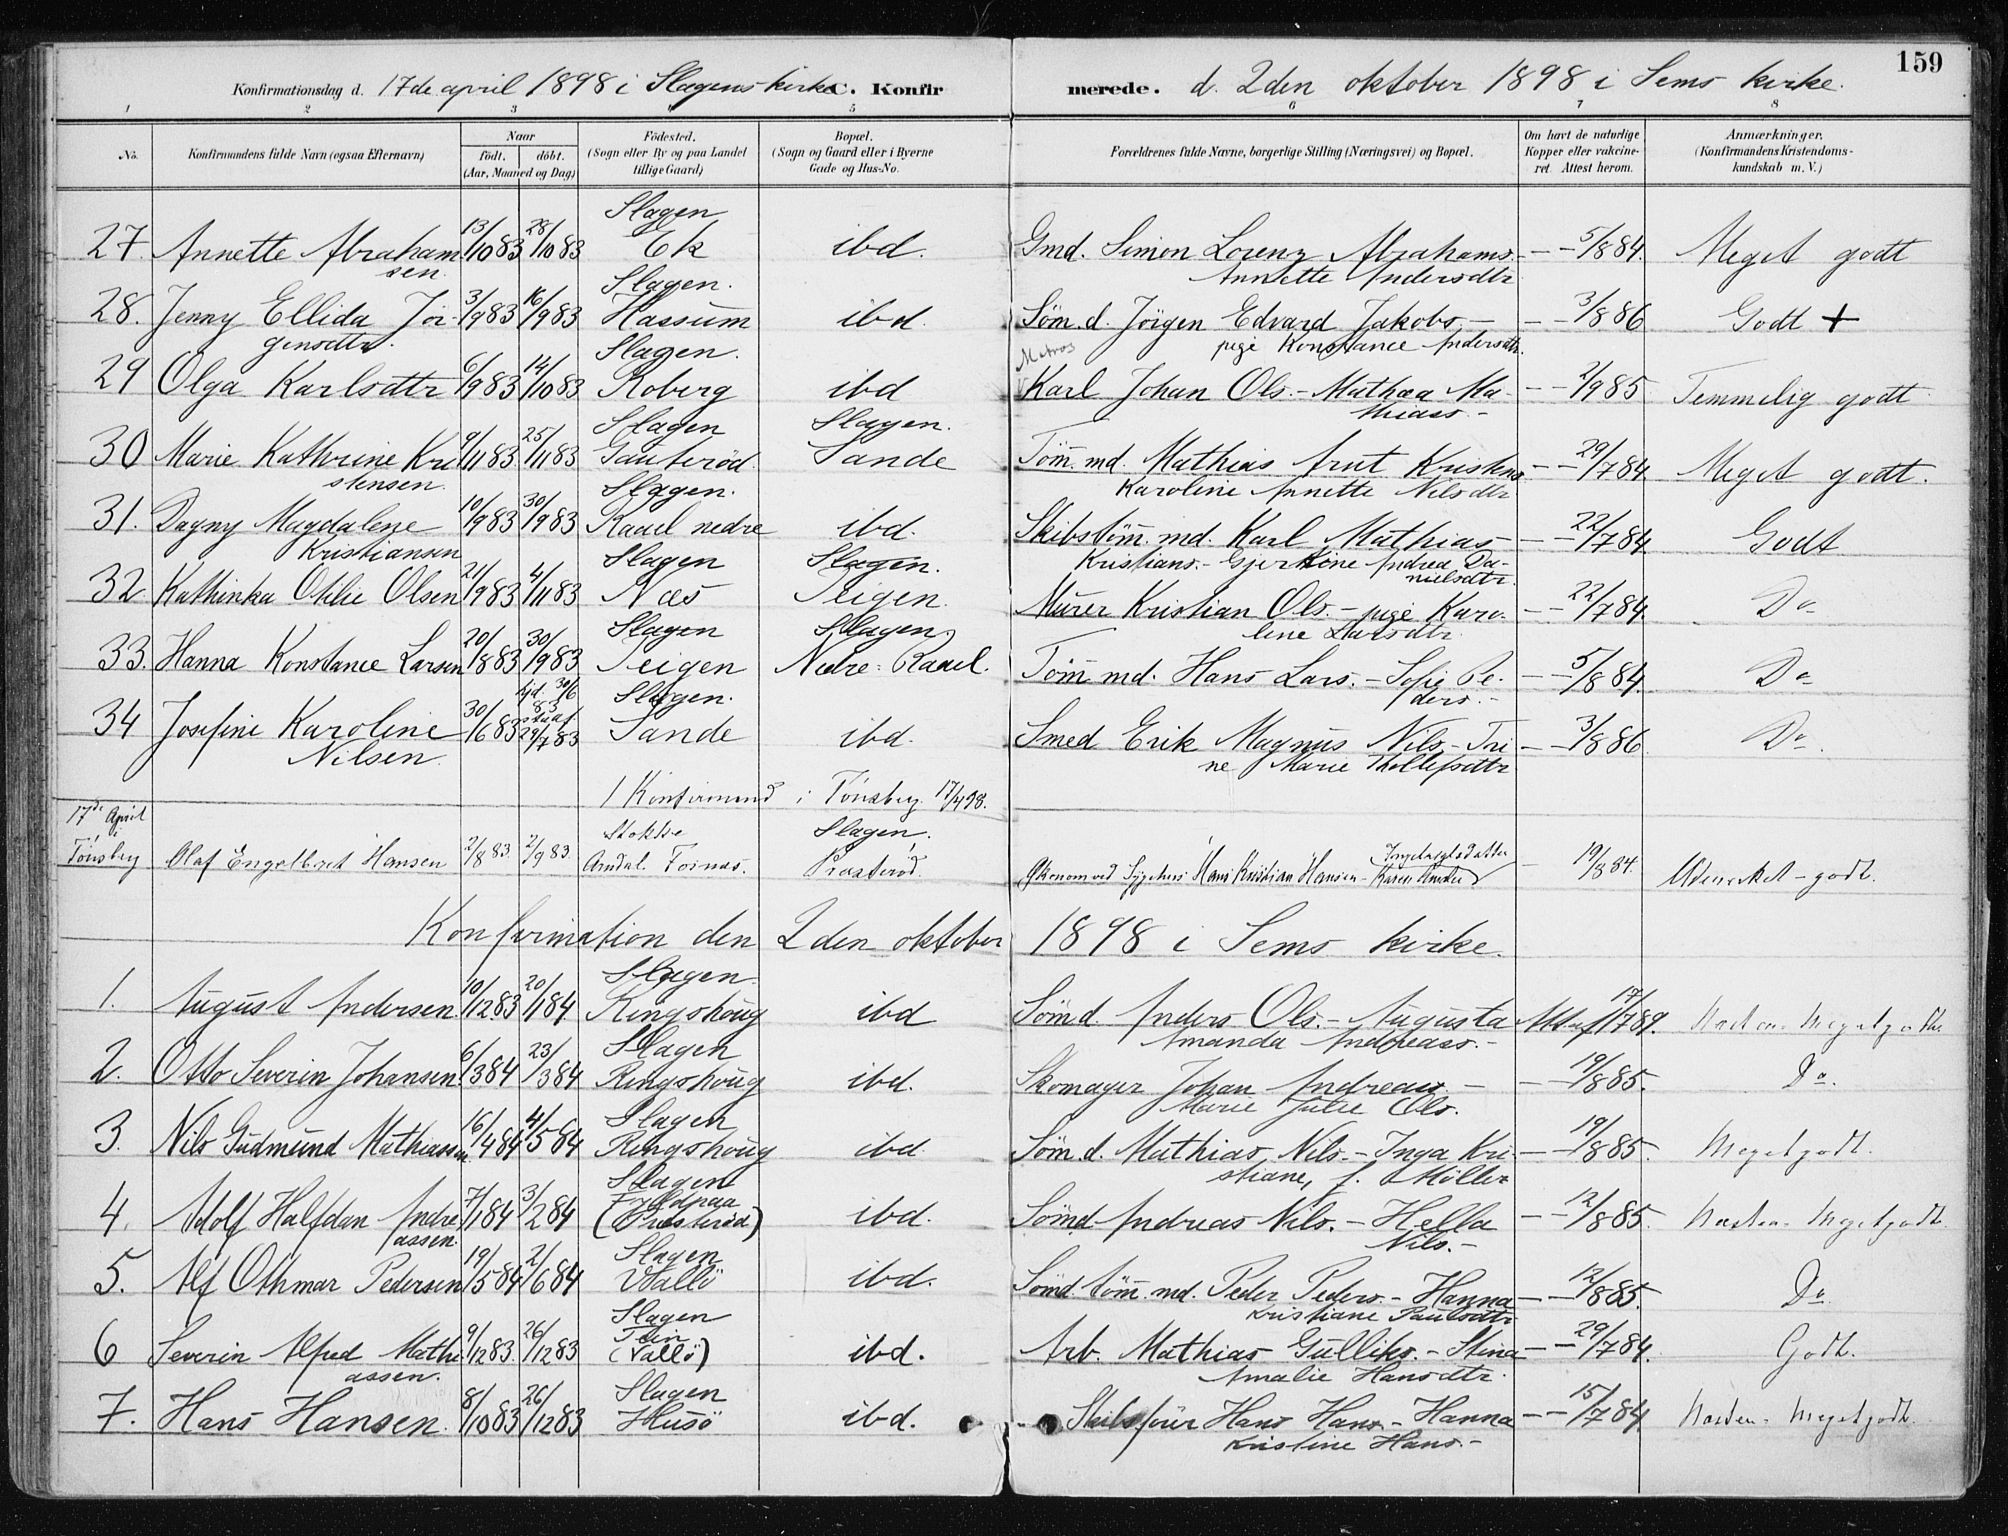 159
Konfirmationsdag d. 17de april 1898 i Slagens kirke C. Konfirmerede. d. 2den oktober 1898 i Sems kirke.
1 2 3 4 5 6 7 8
No. Konfirmandens fulde Navn (ogsaa Efternavn) Naar født. døbt. (Aar, Maaned og Dag) Fødested. (Sogn eller By og paa Landet tillige Gaard) Bopæl. (Sogn og Gaard eller i Byerne Gade og Hus-No. Forældrenes fulde Navne, borgerlige Stilling (Næringsvei) og Bopæl. Om havt de naturlige Kopper eller vakcineret. Attest herom. Anmærkninger. (Konfirmandens Kristendomskundskab m. V.)
27. Annette Abrahamsen. 13/10 83 28/10 83 Slagen Ek ibd. Gmd. Simon Lorenz Abrahams. - Annette Andersdtr. — 5/8 84. Meget godt
28. Jenny Ellida Jörgensdtr. 3/9 83 16/9 83 Slagen. Hassum ibd. Søm. d. Jörgen Edvard Jakobs. - pige Konstance Andersdtr. — 3/8 86 Godt +
29 Olga Karlsdtr 6/9 83 14/10 83 Slagen. Roberg ibd Matros Karl Johan Ols. - Mathea Mathiass. - — 2/9 85 Temmelig godt
30 Marie Kathrine Kristensen. 9/11 83 25/11 83 Slagen Gauterød. Slagen. Sande Tømm. md. Mathias Arnt Kristens. Karoline Annette Nilsdtr — 29/7 84 Meget godt.
31. Dagny Magdalene Kristiansen 10/9 83 30/9 83 Slagen. Raael nedre ibd. Skibstømm. md. Karl Mathias Kristians. - Gjertine Andrea Danielsdtr. — 22/7 84 Godt
32 Kathinka Othlie Olsen 21/9 83 4/11 83 Slagen Næs Slagen. Teigen. Murer Kristian Ols. - pige Karoline Larsdtr. — 22/7 84. Do
33. Hanna Konstance Larsen 20/8 83 30/9 83 Slagen Teigen Slagen, Nedre Raael. Tømm md. Hans Lars. - Sofie Peders. - — 5/8 84. Do
34 Josefine Karoline Nilsen. 30/6 83 hjd. 30/6 83 stadf. 29/7 83 Slagen. Sande ibd. Smed Erik Magnus Nils. - Trine Marie Thollefsdtr — 3/8 86 Do.
1 Konfirmand i Tønsberg 17/4 98.
17de April i Tønsberg Olaf Engelbret Hansen 2/8 83. 2/9 83. Stokke Arndal Fornæs. Slagen, Presterød. Økonom ved Sygehus. Hans Kristian Hansen - Karen — 19/8 84. Udmerket - godt.
Konfirmation den 2den oktober 1898 i Sems kirke.
1. August Andersen. 10/12 83 20/1 84 Slagen. Ringshoug ibd Sømd. Anders Ols. - Augusta Amanda Andreass. - Attest 17/7 89. Næsten meget godt.
2. Otto Severin Johansen. 6/3 84 23/3 84 Slagen Ringshoug ibd. Skomager Johan Andreas. - Marie Julie Ols. — 19/8 85. Do.
3. Nils Gudmund Mathiassen. 16/4 84 4/5 84 Slagen Ringshoug ibd. Søm. d. Mathias Nils. - Inga Kristiane, f. Møller — 19/8 85. Meget godt.
4. Adolf Halfdan Andreassen. 7/1 84 3/2 84 Slagen (Presterød) ibd. Sømd. Andreas Nils. - Hella Nils. - — 12/8 85. Næsten meget godt.
5. Alf Othmar Pedersen 19/5 84 2/6 84 Slagen Vallö ibd. Sømd. tømm. md. Peder Peders. - Hanna Kristiane Paulsdtr — 12/8 85. Do
6 Severin Alfred Mathiassen. 9/12 83. 26/12 83 Slagen (Vallö) ibd. Arb. Mathias Gulliks. - Stina Amalie Hansdtr. — 29/7 84. Godt.
7. Hans Hansen. 8/10 83 26/12 83 Slagen Husö ibd. Skibsfører Hans Hans. - Hanna Kristine Hans. - — 15/7 84. Næsten meget godt.